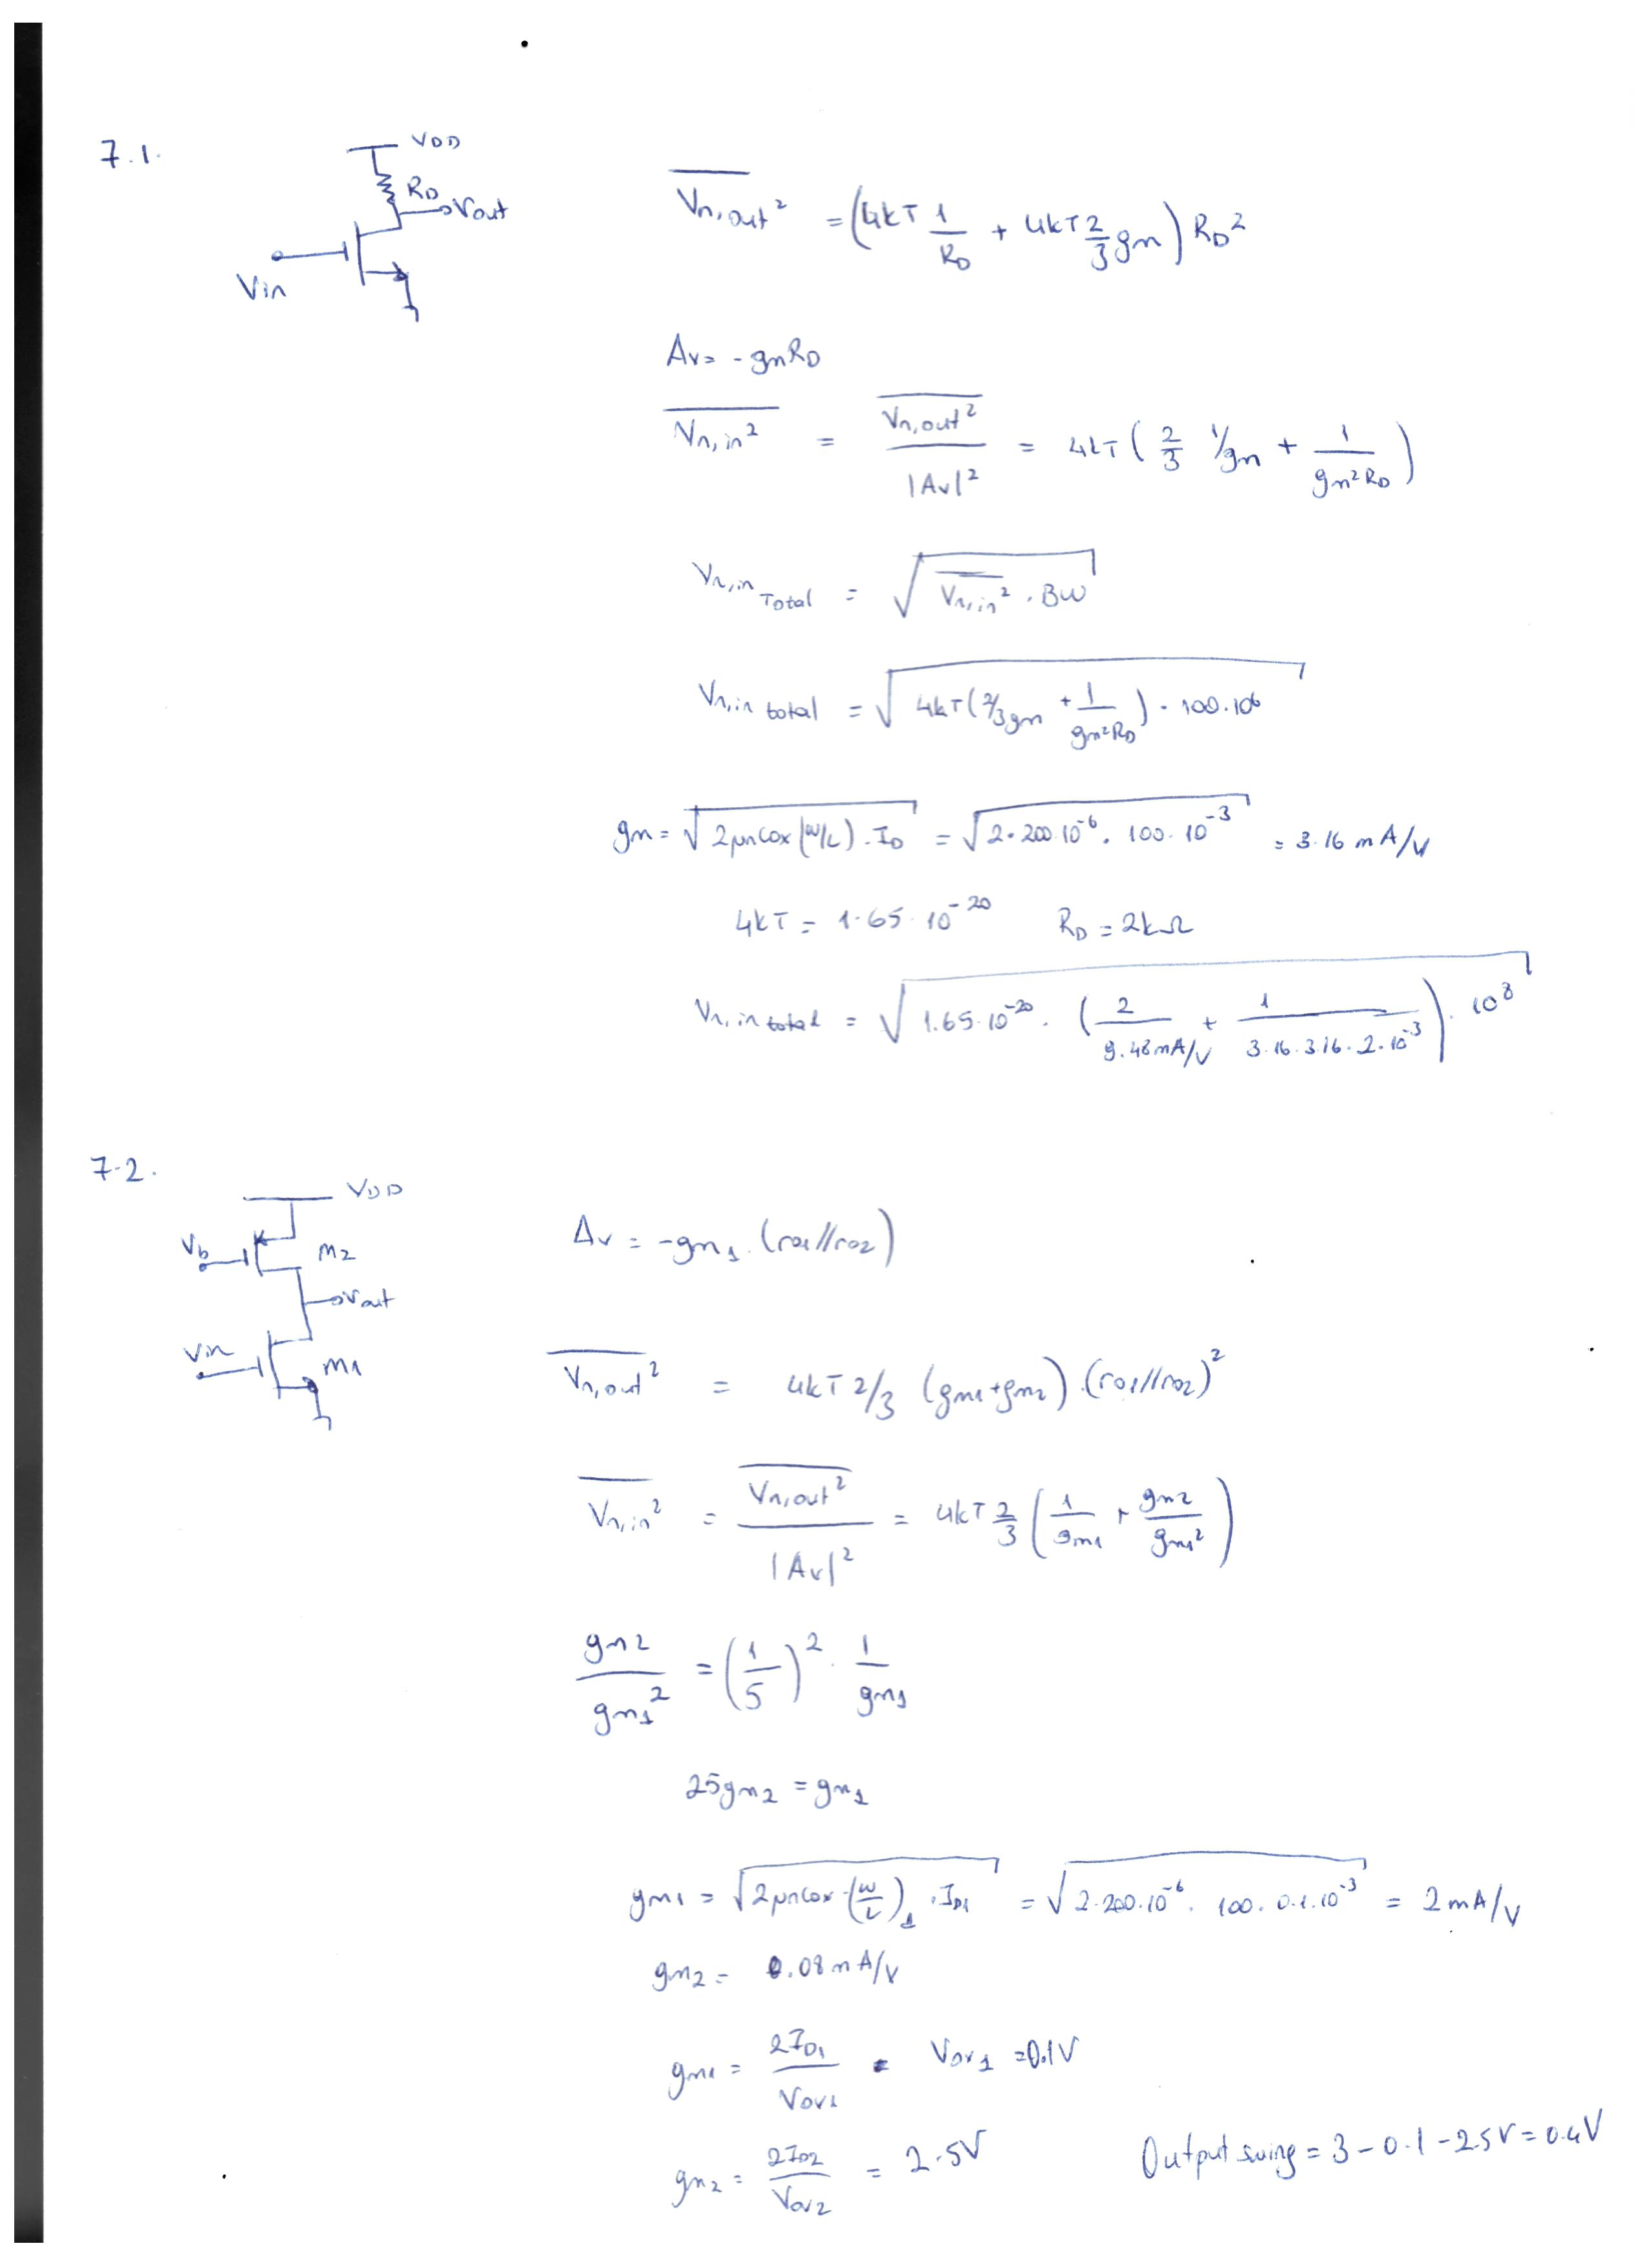 7.1.
VDD
RD
Vout
Vin
Vn,out² = (4kT 1/RD + 4kT 2/3 gm) RD²
Av = -gmRD
Vn,in² = Vn,out² / |Av|² = 4kT (2/3 1/gm + 1/gm²RD)
Vn,in Total = √(Vn,in² . BW)
Vn,in total = √(4kT (2/3gm + 1/gm²RD) . 100.10⁶)
gm = √(2μnCox (W/L) . ID) = √(2.200.10⁻⁶ . 100.10⁻³) = 3.16 mA/V
4kT = 1.65.10⁻²⁰ RD = 2kΩ
Vn,in total = √(1.65.10⁻²⁰ . (2/9.48mA/V + 1/3.16.3.16.2.10⁻³) . 10⁸)
7.2.
VDD
Vb
M2
Vout
Vin
M1
Av = -gm1 . (ro1//ro2)
Vn,out² = 4kT 2/3 (gm1+gm2) . (ro1//ro2)²
Vn,in² = Vn,out² / |Av|² = 4kT 2/3 (1/gm1 + gm2/gm1²)
gm2/gm1² = (1/5)² . 1/gm1
25gm2 = gm1
gm1 = √(2μnCox . (W/L)1 . ID1) = √(2.200.10⁻⁶ . 100. 0.1.10⁻³) = 2mA/V
gm2 = 0.08mA/V
gm1 = 2ID1/Vov1 Vov1 = 0.1V
gm2 = 2ID2/Vov2 = 2.5V
Output swing = 3-0.1-2.5V = 0.4V